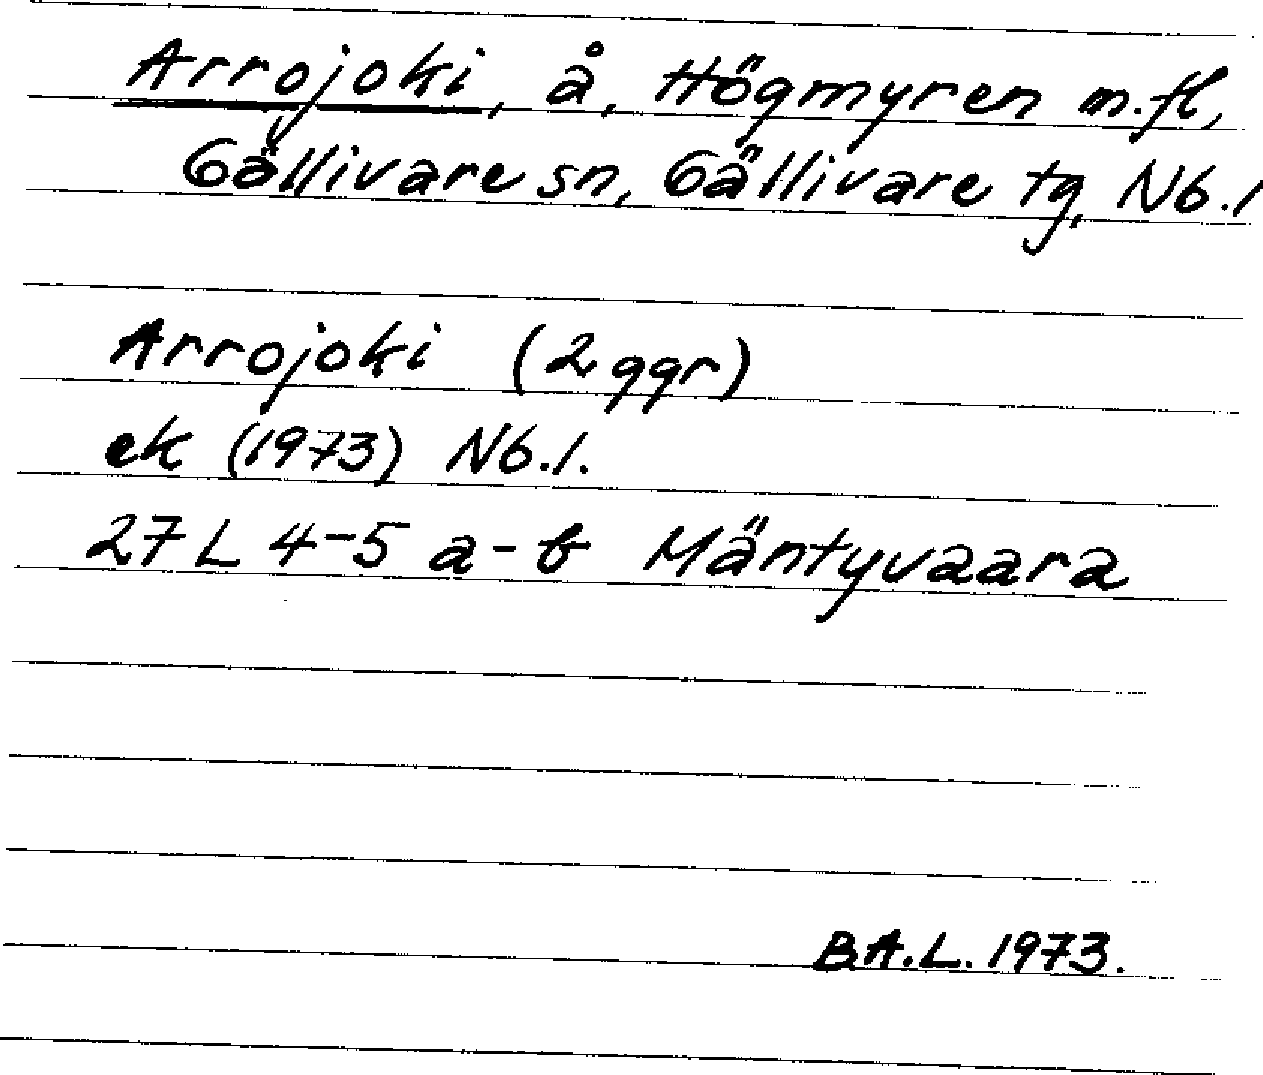 Arrojoki, å, Högmyren m.fl,
Gällivare sn, Gällivare tg, Nb.l
Arrojoki (2 ggr)
ek (1973) Nb.l.
27 L 4-5 a-b Mäntyvaara
B.A.L. 1973.